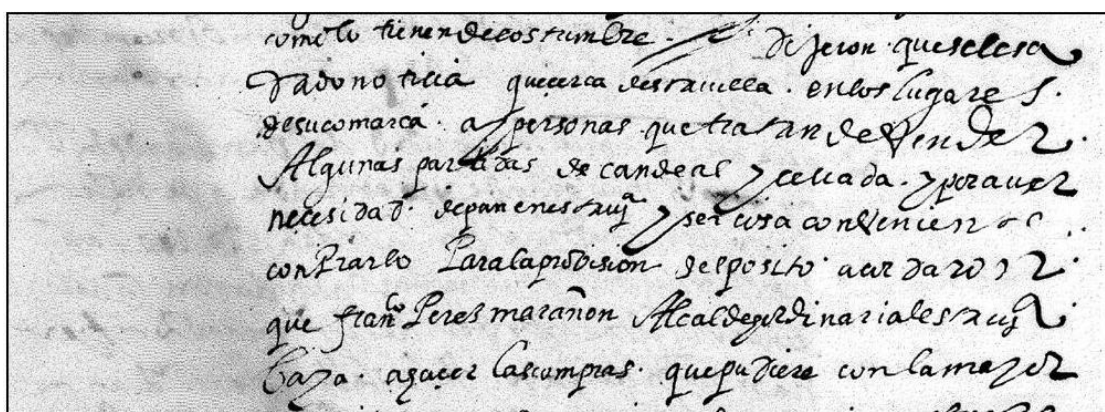 como lo tienen de costumbre. dijeron que se les a
dado noticia que cerca desta villa. en los lugares.
de su comarca. ay personas que tratan de Vender.
Algunas partidas de candeal y cevada. y por aver
necesidad. de pan en esta uiª y ser cosa convenien te
conPrarlo Para la probision del posito. acordaron.
que franco Peres marañon Alcalde hordinario desta uiª
baya. a haçer las compras. que pudiere con la mayor